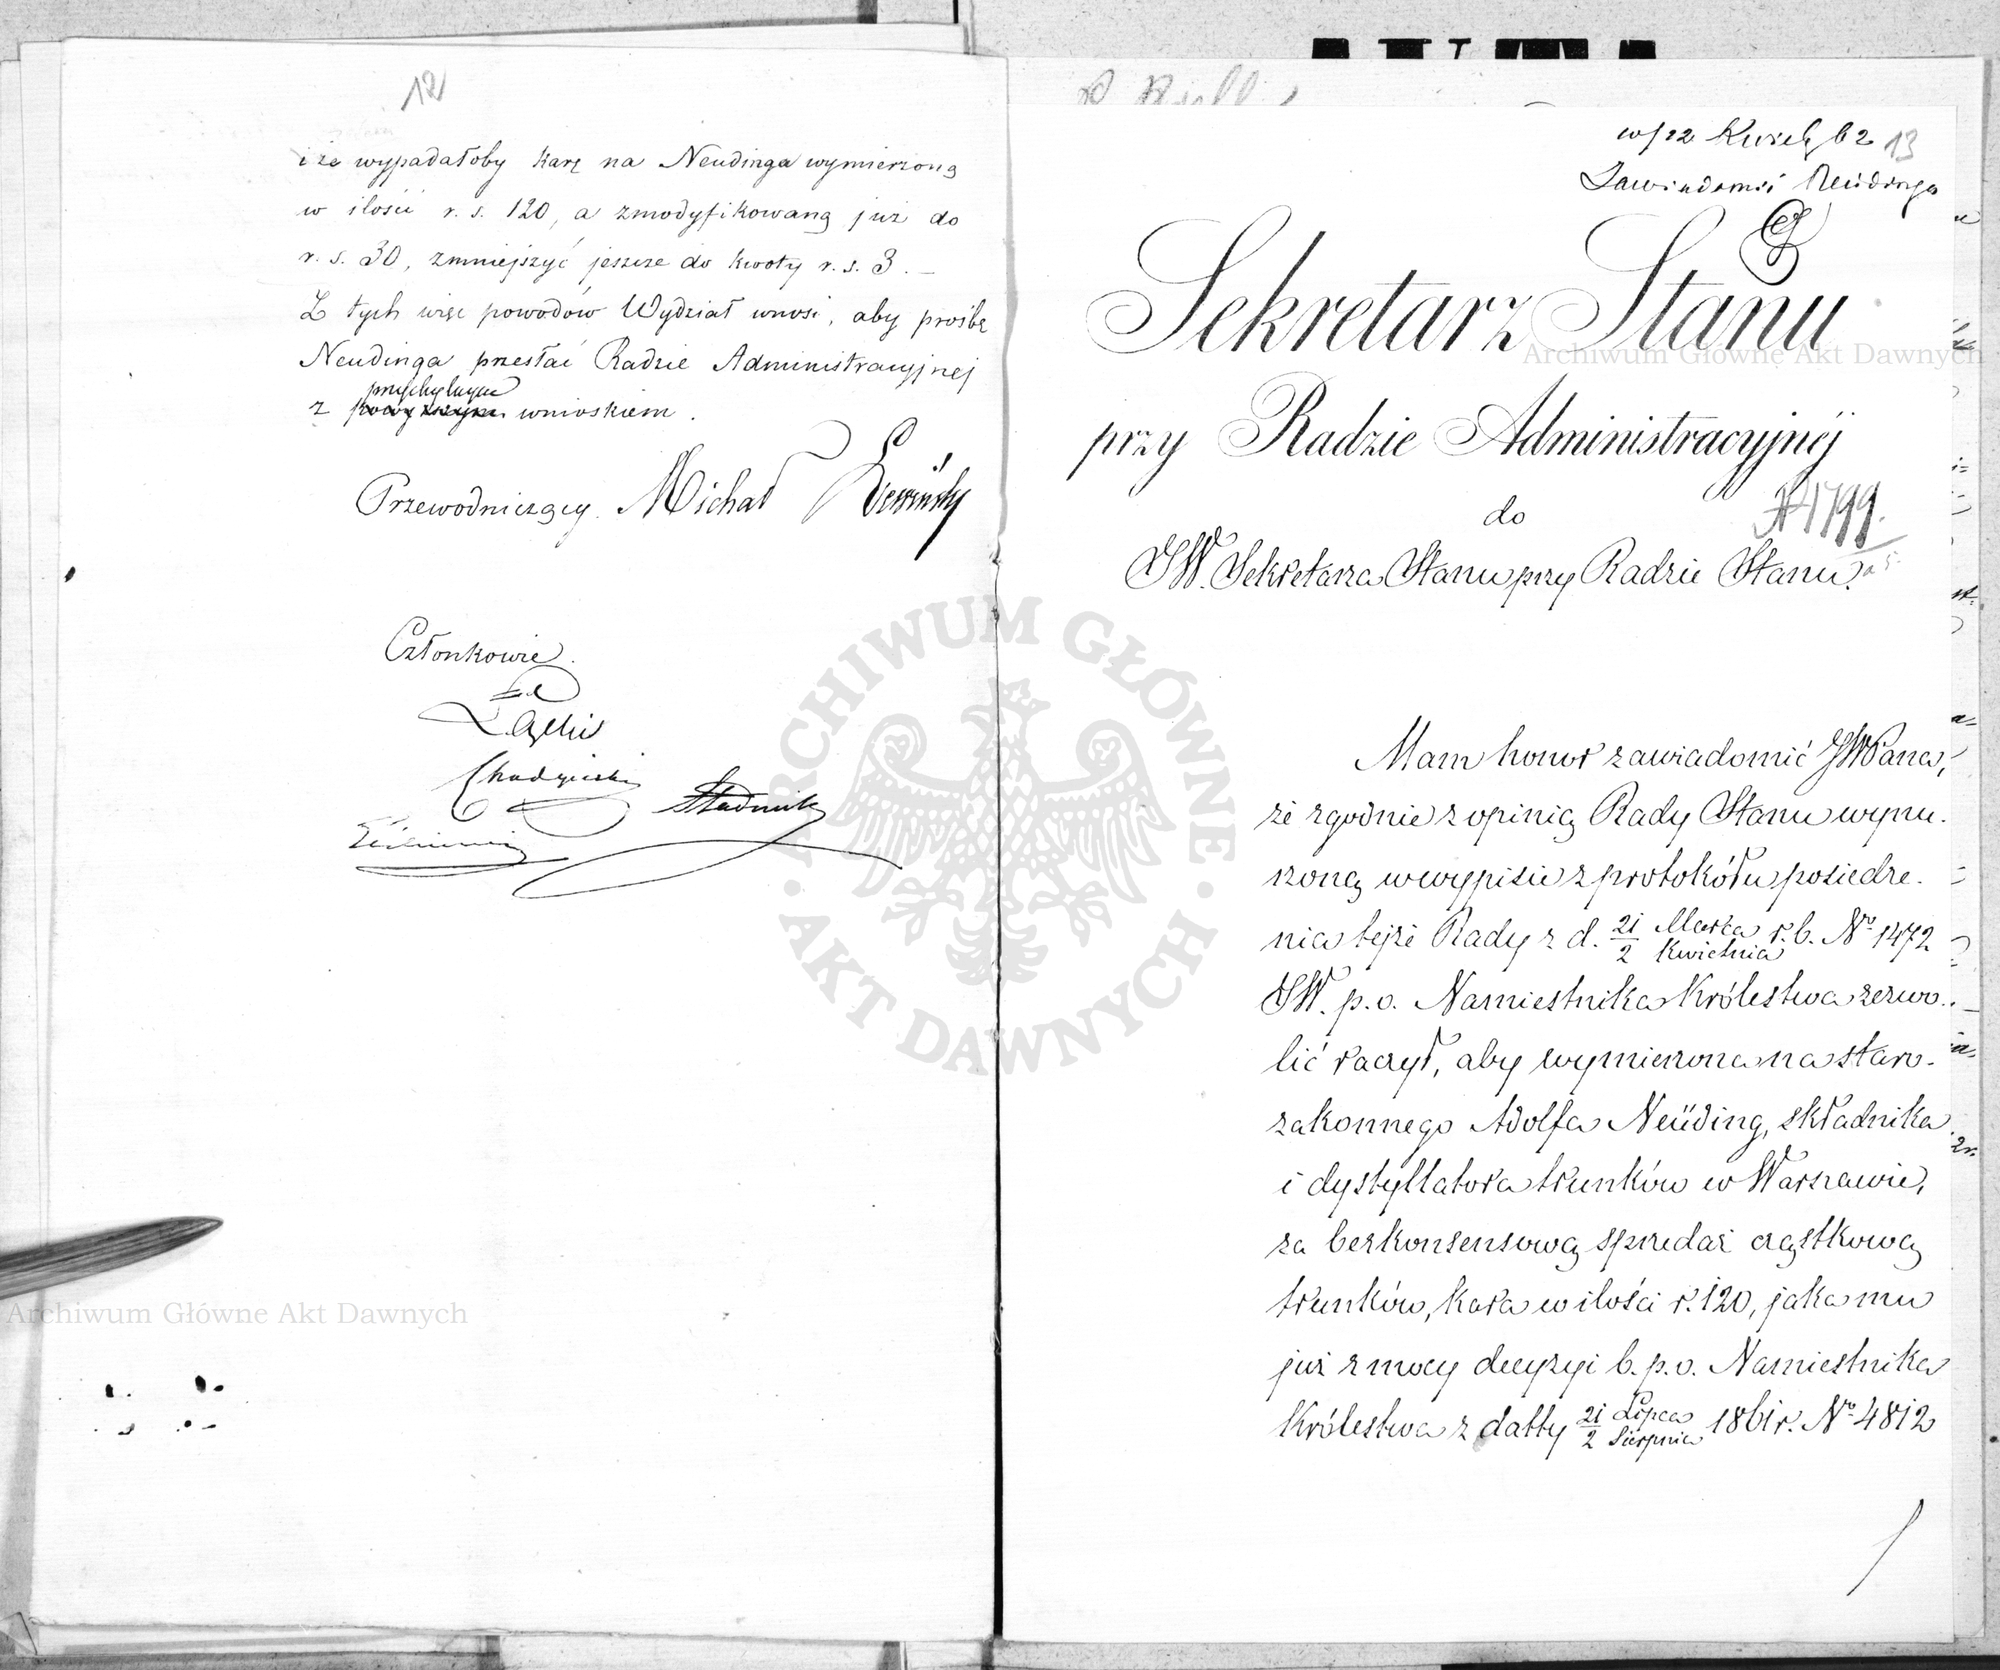 12
i że wypadałoby karę na Neudinga wymierzoną
w ilości r. s. 120, a zmodyfikowaną już do
r. s. 30, zmniejszyć jeszcze do kwoty r. s. 3. —
Z tych więc powodów Wydział wnosi, aby prośbę
Neudinga przesłać Radzie Administracyjnej
przychylnym
z wnioskiem.
Przewodniczący. Michał
Członkowie.
Łęcki
Chudzyński
Stadnicki
w/22 Kwiet 62 13
Zawiadomić Neudinga
Sekretarz Stanu
przy Radzie Administracyjnéj
do
N 1799.
JW. Sekretarza Stanu przy Radzie Stanu.
Mam honor zawiadomić JWPana,
że zgodnie z opinią Rady Stanu wynu-
rzoną w wypisie z protokółu posiedze-
nia tejże Rady z d. 21/2 Marca/Kwietnia r. b. No 1472
JW. p. o. Namiestnika Królestwa zezwo-
lić raczył, aby wymierzona na staro-
zakonnego Adolfa Neüding, składnika
i dystyllatora trunków w Warszawie,
za bezkonsensową sprzedaż cząstkową
trunków, kara w ilości r. 120, jaka mu
już z mocy decyzyi b. p. o. Namiestnika
Królestwa z datty 21/2 Lipca/Sierpnia 1861 r. No 4812
Archiwum Główne Akt Dawnych
Archiwum Główne Akt Dawnych
ARCHIWUM GŁÓWNE · AKT DAWNYCH ·